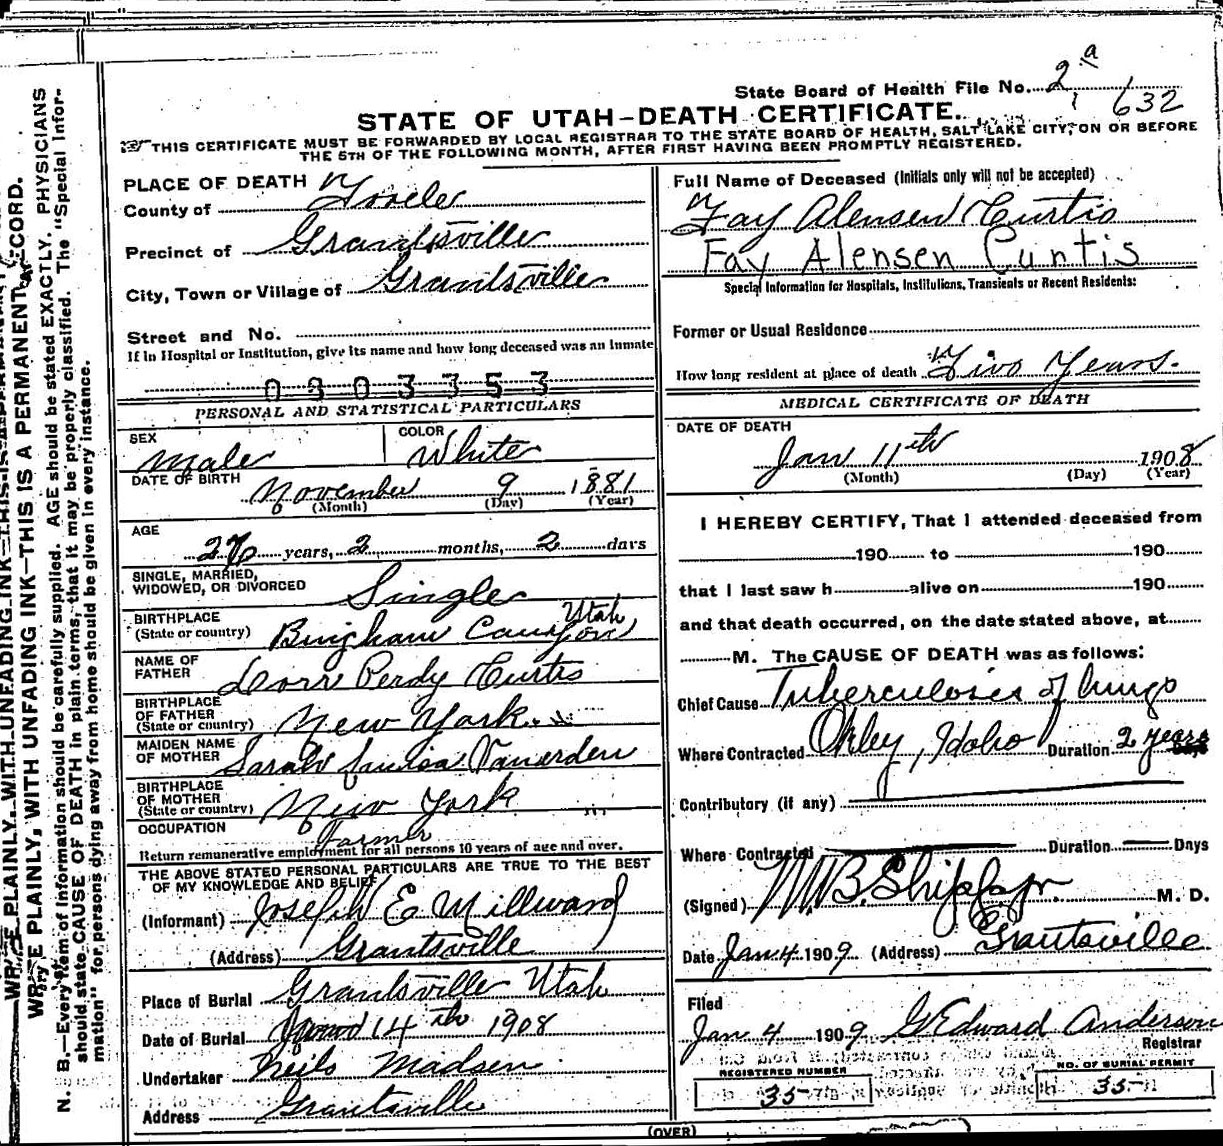 State Board of Health File No. 2 a 1 632
STATE OF UTAH-DEATH CERTIFICATE.
THIS CERTIFICATE MUST BE FORWARDED BY LOCAL REGISTRAR TO THE STATE BOARD OF HEALTH, SALT LAKE CITY, ON OR BEFORE
THE 5TH OF THE FOLLOWING MONTH, AFTER FIRST HAVING BEEN PROMPTLY REGISTERED.
PLACE OF DEATH
County of Tooele
Precinct of Grantsville
City, Town or Village of Grantsville
Street and No.
If in Hospital or Institution, give its name and how long deceased was an inmate
0303353
PERSONAL AND STATISTICAL PARTICULARS
SEX Male COLOR White
DATE OF BIRTH November 9 1881
(Month) (Day) (Year)
AGE 26 years, 2 months, 2 days
SINGLE, MARRIED, WIDOWED, OR DIVORCED Single
BIRTHPLACE (State or country) Bingham Canyon Utah
NAME OF FATHER Dorr Perdy Curtis
BIRTHPLACE OF FATHER (State or country) New York
MAIDEN NAME OF MOTHER Sarah Louisa Vanorden
BIRTHPLACE OF MOTHER (State or country) New York
OCCUPATION Farmer
Return remunerative employment for all persons 10 years of age and over.
THE ABOVE STATED PERSONAL PARTICULARS ARE TRUE TO THE BEST
OF MY KNOWLEDGE AND BELIEF
(Informant) Joseph E Millward
(Address) Grantsville
Place of Burial Grantsville Utah
Date of Burial 14th 1908
Undertaker Neils Madsen
Address Grantsville
Full Name of Deceased (Initials only will not be accepted)
Fay Alensen Curtis
Fay Alensen Curtis
Special Information for Hospitals, Institutions, Transients or Recent Residents:
Former or Usual Residence
How long resident at place of death Five Years.
MEDICAL CERTIFICATE OF DEATH
DATE OF DEATH
Jan 11th 1908
(Month) (Day) (Year)
I HEREBY CERTIFY, That I attended deceased from
190 to 190
that I last saw h alive on 190
and that death occurred, on the date stated above, at
M. The CAUSE OF DEATH was as follows:
Chief Cause Tuberculosis of lungs
Where Contracted Okley, Idaho Duration 2 years
Contributory (if any)
Where Contracted Duration Days
(Signed) M. D.
Date Jan 4 1909 (Address) Grantsville
Filed
Jan 4 1909 G Edward Anderson
Registrar
REGISTERED NUMBER 35 NO. OF BURIAL PERMIT 35
(OVER)
WRITE PLAINLY, WITH UNFADING INK—THIS IS A PERMANENT RECORD.
N. B.—Every item of information should be carefully supplied. AGE should be stated EXACTLY. PHYSICIANS
should state CAUSE OF DEATH in plain terms, that it may be properly classified. The "Special Infor-
mation" for persons dying away from home should be given in every instance.